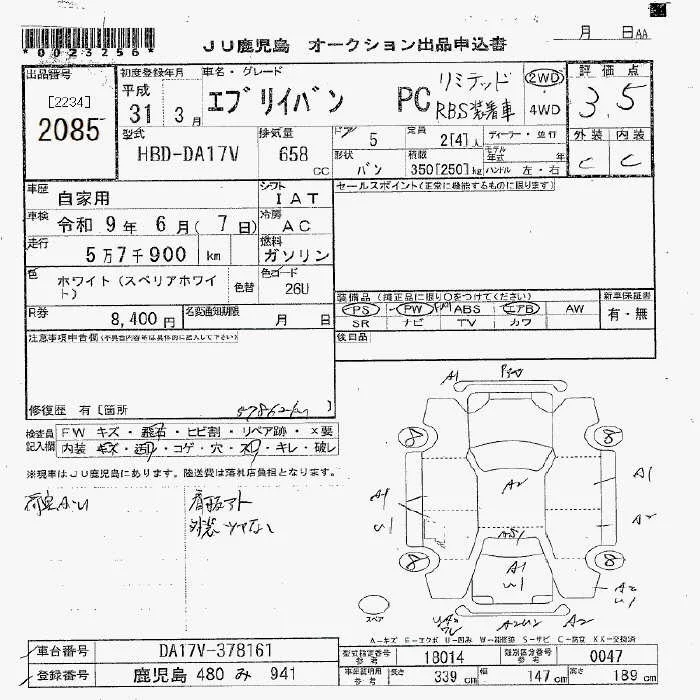 *0023256*
JU鹿児島 オークション出品申込書
月 日AA
出品番号
[2234]
2085
初度登録年月
平成
31 3月
車名・グレード
エブリイバン PC リミテッド
RBS装着車
2WD
・
4WD
評価点
3.5
型式
HBD-DA17V
排気量
658 CC
ドア 5
定員 2[4]人
ディーラー・並行
モデル年式 年
形状 バン
積載 350[250]kg
ハンドル 左・右
外装 内装
C C
車歴 自家用
シフト IAT
セールスポイント(正常に機能するものに限ります)
車検 令和 9年 6月( 7日)
冷房 AC
走行 5万7千900 km
燃料 ガソリン
色 ホワイト(スペリアホワイト)
色替
色コード 26U
装備品(純正品に限り○をつけてください)
新車保証書
PS PW ABS エアB AW
有・無
SR ナビ TV カワ
R券 8,400円
名変通知期限 月 日
後日品
注意事項申告欄(不具合内容等は具体的に記入して下さい)
修復歴 有[箇所 57862km ]
検査員記入欄
FW キズ・飛石・ヒビ割・リペア跡・×要
内装 キズ・汚れ・コゲ・穴・スレ・キレ・破レ
※現車はJU鹿児島にあります。陸送費は落札店負担となります。
看板アト
外装ツヤナシ
A1
8 8
A1
A2
A1
U1
A2
A1
U1
8 8
A2
U1
A2U2 A2
スペア
A-キズ E-エクボ U-凹み W-補修跡 S-サビ C-腐食 XX-交換済
車台番号 DA17V-378161
登録番号 鹿児島 480 み 941
型式指定番号 参考 18014
類別区分番号 参考 0047
車庫証明用 参考
長さ 339 cm
幅 147 cm
高さ 189 cm